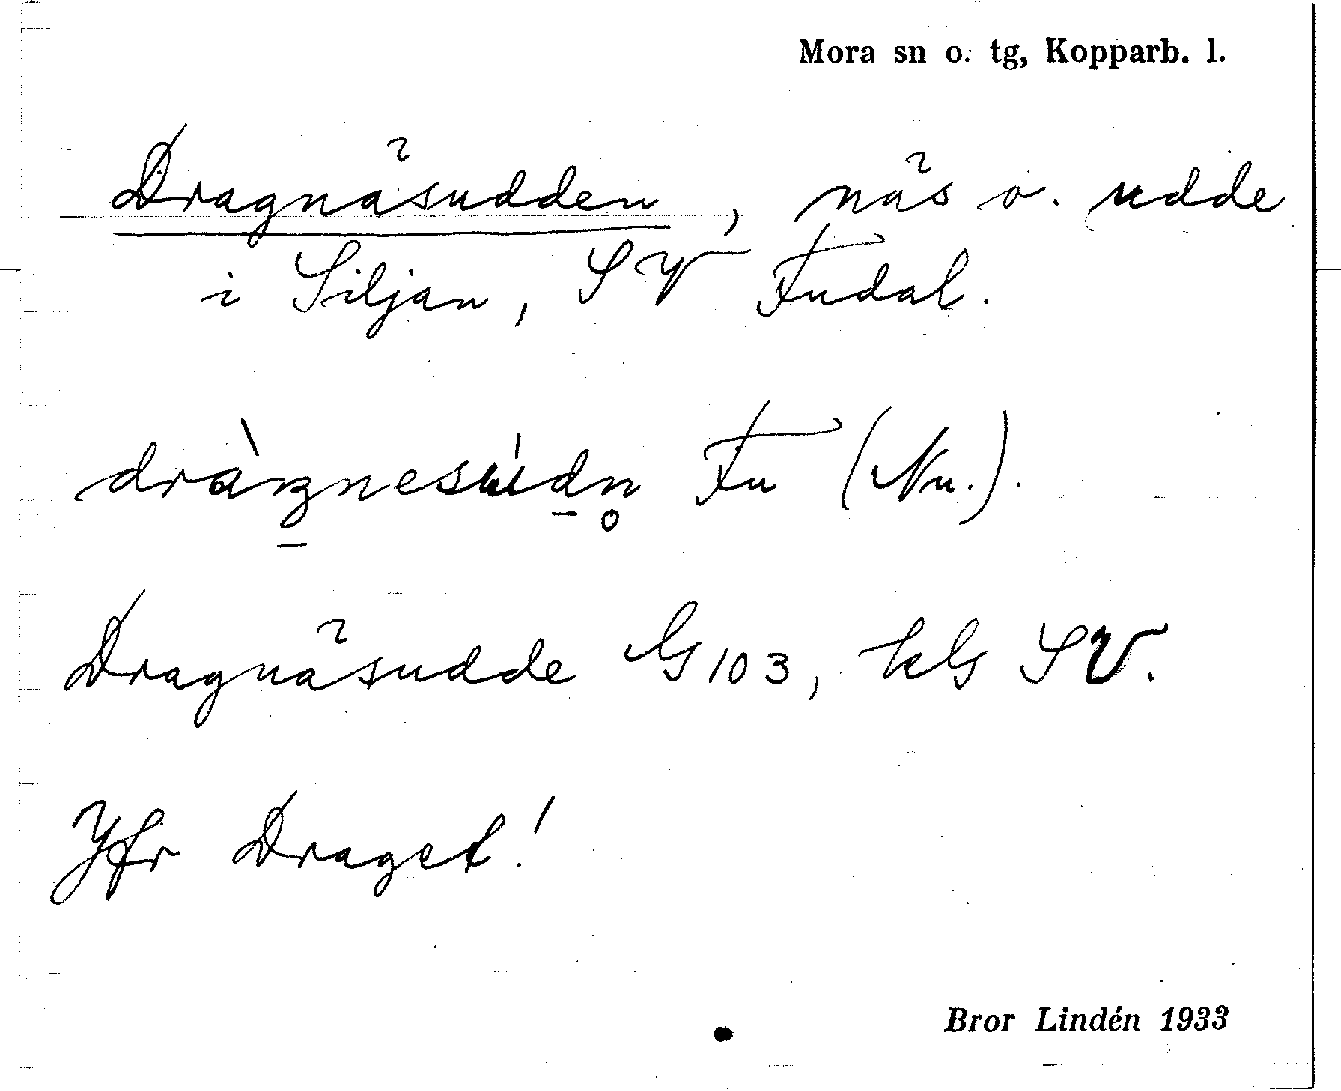 Mora sn o. tg, Kopparb. l.
Dragnäsudden, näs o. udde
i Siljan, SV Fudal.
dràgnesúd̠n̥ Fu (Nu.).
Dragnäsudde G103, kG SV.
Jfr Draget!
Bror Lindén 1933